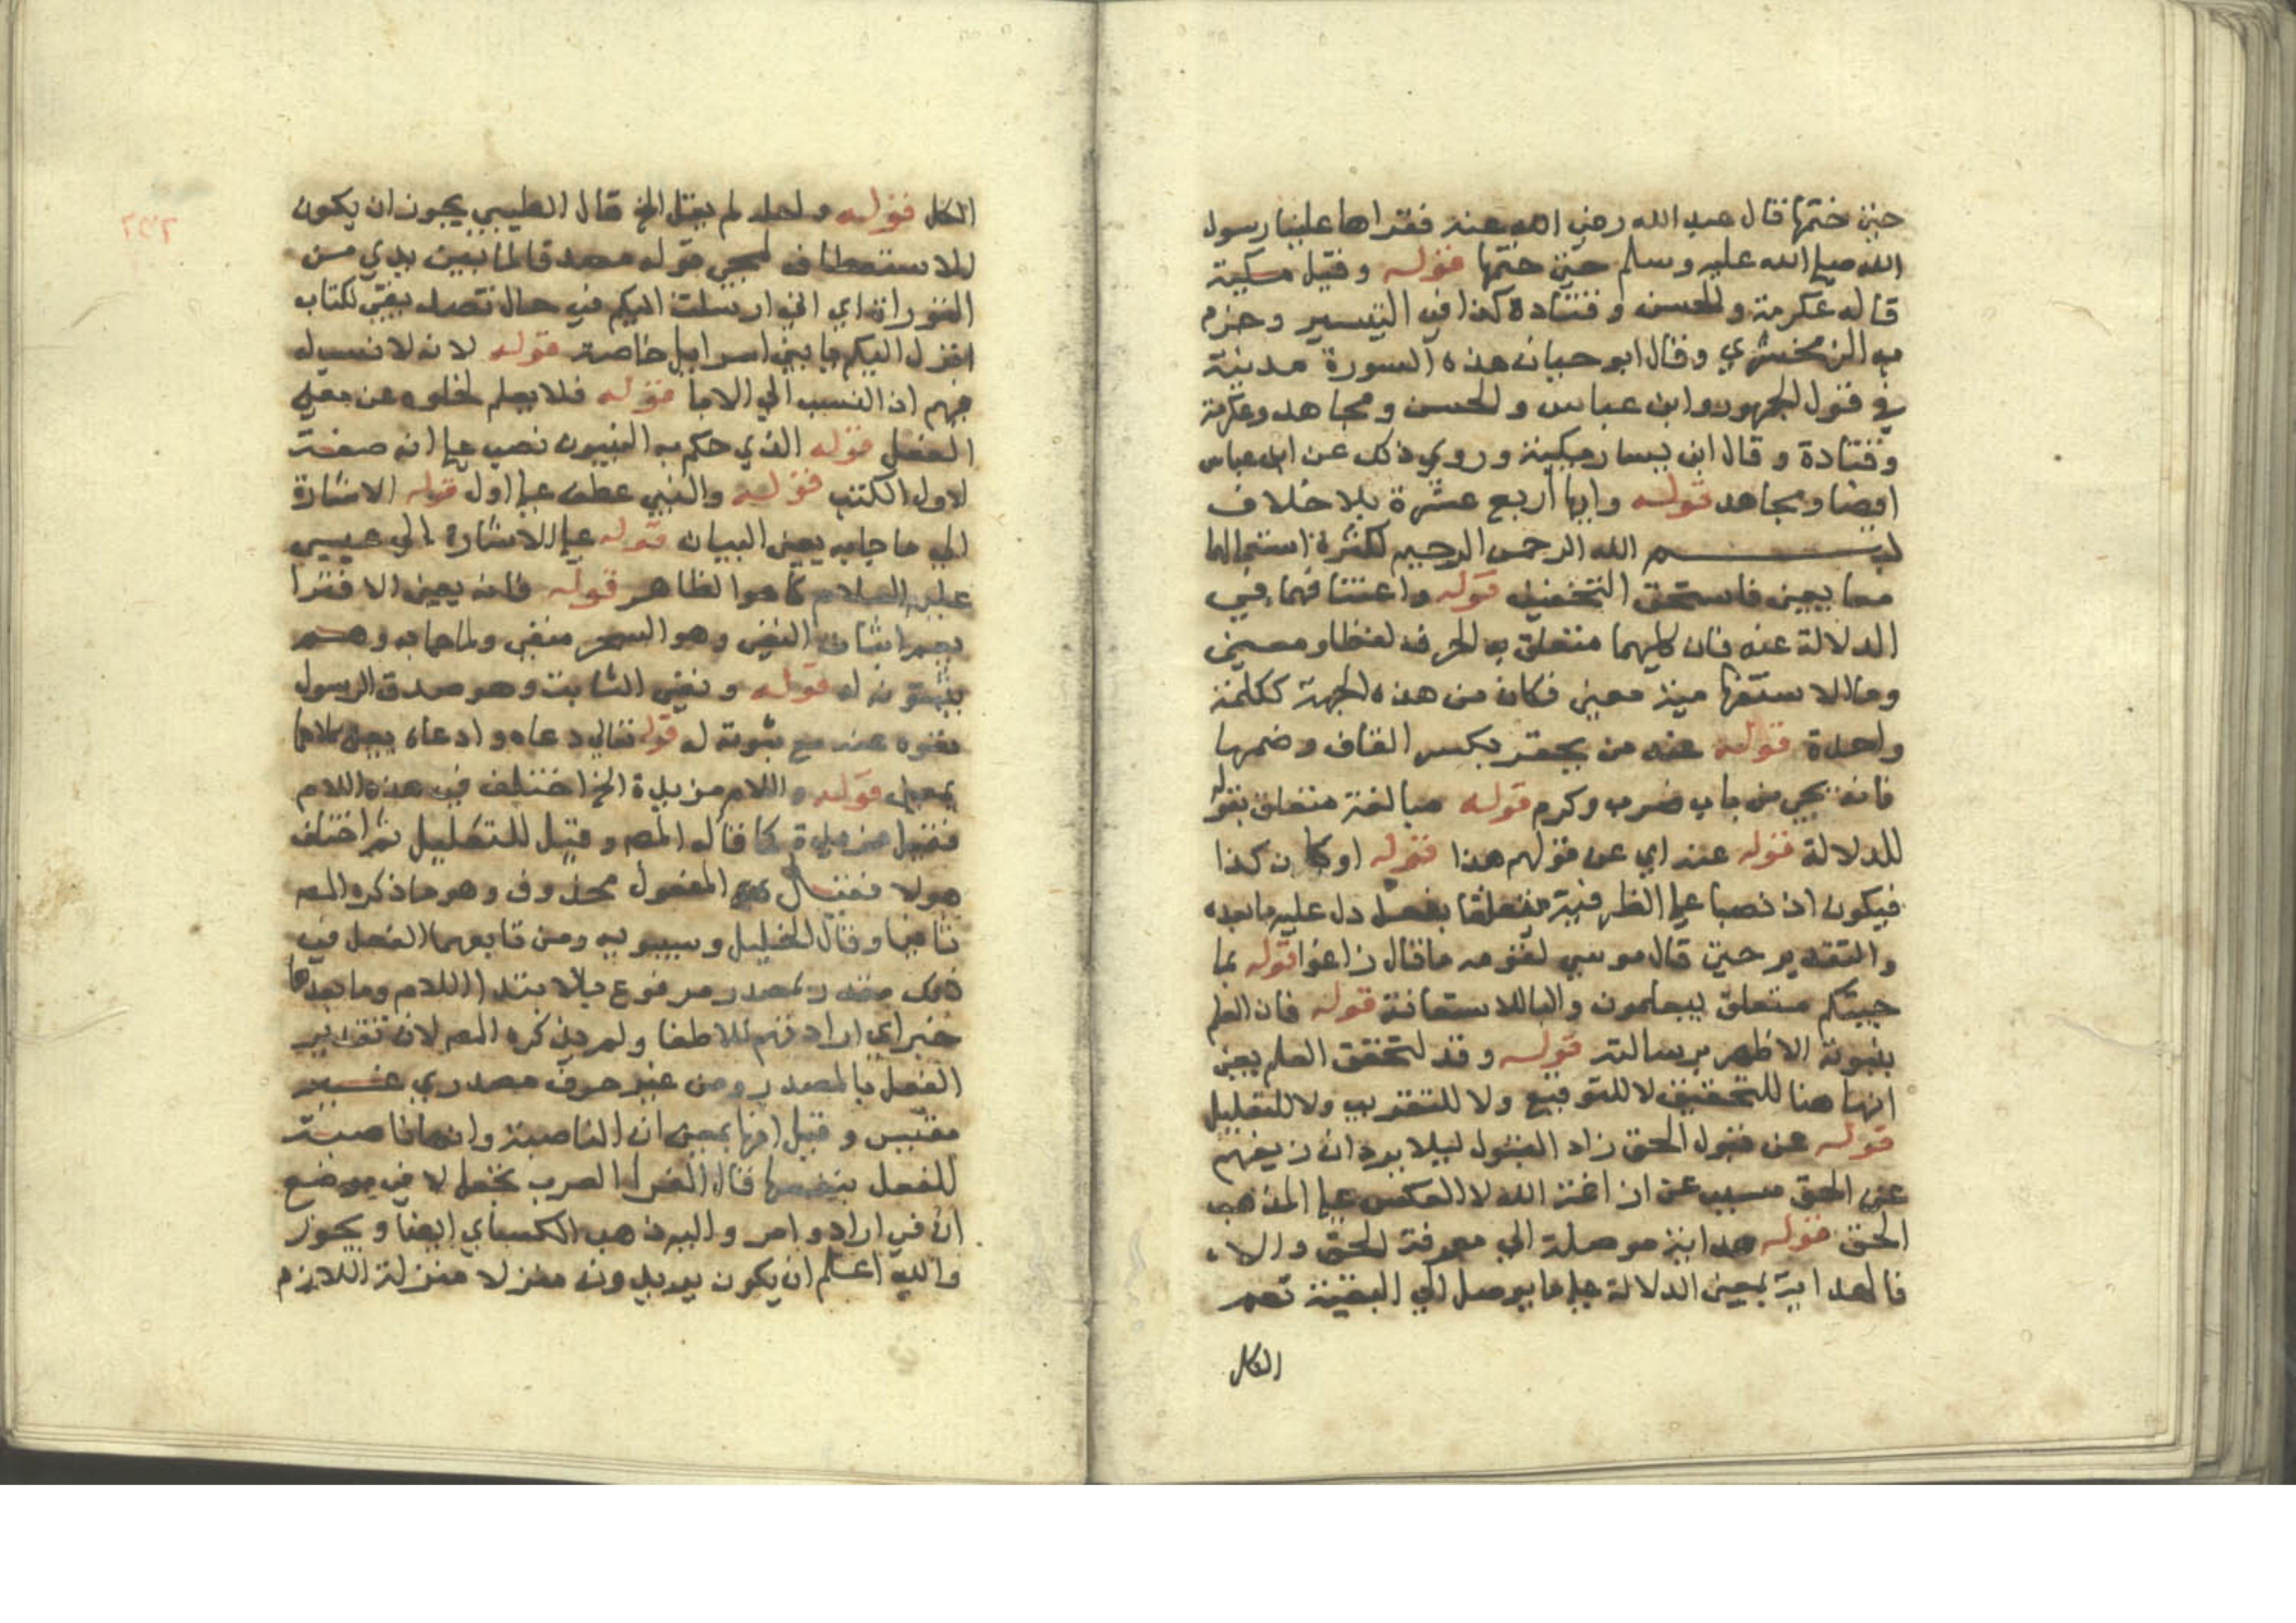 حين ختمها قال عبد الله رضي الله عنه فقراها علينا رسول
الله صلي الله عليه وسلم حين ختمها قوله وقيل مكية
قاله عكرمة والحسن وقتادة كذا في التيسير وجزم
به الزمخشري وقال ابو حيان هذه السورة مدنية
في قول الجمهور وابن عباس والحسن ومجاهد وعكرمة
وقتادة وقال ابن يسار مكية وروي ذلك عن ابن عباس
ايضا ومجاهد قوله وايها اربع عشرة بلا خلاف
بسم الله الرحمن الرحيم لكثرة استعمالها
معا يعني فاستحق التخفيف قوله واعتناقهما في
الدلالة عنه فان كليهما متعلق به الحرف لفظا ومعني
وما الاستفها مية معني فكان من هذه الجهة ككلمة
واحدة قوله عنه من يحقر بكسر القاف وضمها
فانه يجي من باب ضرب وكرم قوله مبالغة متعلق بقوله
للدلالة قوله عند اي عن قولهم هذا قوله او كان كذا
فيكون اذ نصبا علي الظرفية متعلقا بفعل دل عليه ما بعده
والتقدير حين قال موسي لقومه ما قال زاغوا قوله بما
جيتكم متعلق بيعلمون والبا للاستعانة قوله فان العلم
بنبوته الاظهر برسالته قوله وقد لتحقق العلم يعني
انها هنا للتحقيق لا للتوقيع ولا للتقريب ولا للتقليل
قوله عن قبول الحق زاد القبول ليلا يرد ان زيغهم
عن الحق مسبب عن ازاغة الله لا العكس علي المذهب
الحق قوله هداية موصلة الي معرفة الحق والا
فالهداية بمعني الدلالة علي ما يوصل الي البغية تعم
الكل
الكل قوله ولعله لم يقل الخ قال الطيبي يجوز ان يكون
للاستعطاف لمجي قوله مصدقا لما بين يدي من
التوراة اي اني ارسلت اليكم في حال تصديقي لكتاب
انزل اليكم يا بني اسرايل خاصة قوله لانه لا نسب له
فيهم اذ النسب الي الابا قوله فلا يعلم لخلوه عن معني
الفعل قوله الذي حكم به النبيون نصب علي انه صفة
لاول الكتب قوله والنبي عطف علي اول قوله الاشارة
الي ما جا به يعني البيان قوله علي للاشارة الي عيسي
عليه السلام كما هو الظاهر قوله فانه يعني الافترا
يعم اثبات النفي وهو السحر منفي ولما جا به وهم
يثبتونه له قوله ونفي الثابت وهو صدق الرسول
نفوه عنه مع ثبوته له قوله يقال دعاه وادعاه يعني كلاهما
بمعني قوله واللام مزيدة الخ اختلف في هذه اللام
فقيل مزيدة كما قال المص وقيل للتعليل ثم اختلف
هولا فقيل المفعول محذوف وهو ما ذكره المص
ثانيا وقال الخليل وسيبويه ومن تابعهما الفعل في
ذلك مقدر بمصدر مرفوع بالابتدا واللام وما بعدها
خبر اي ارادتهم للاطفا ولم يذكره المص لان تقدير
الفعل بالمصدر ومن غير حرف مصدري غير
مقيس وقيل انها بمعني ان الناصبة وانها ناصبة
للفعل بنفسها قال الفرا العرب تجعل لا في موضع
ان في اراد وامر واليه ذهب الكساي ايضا ويجوز
والله اعلم ان يكون يريدون منزلا منزلة اللازم